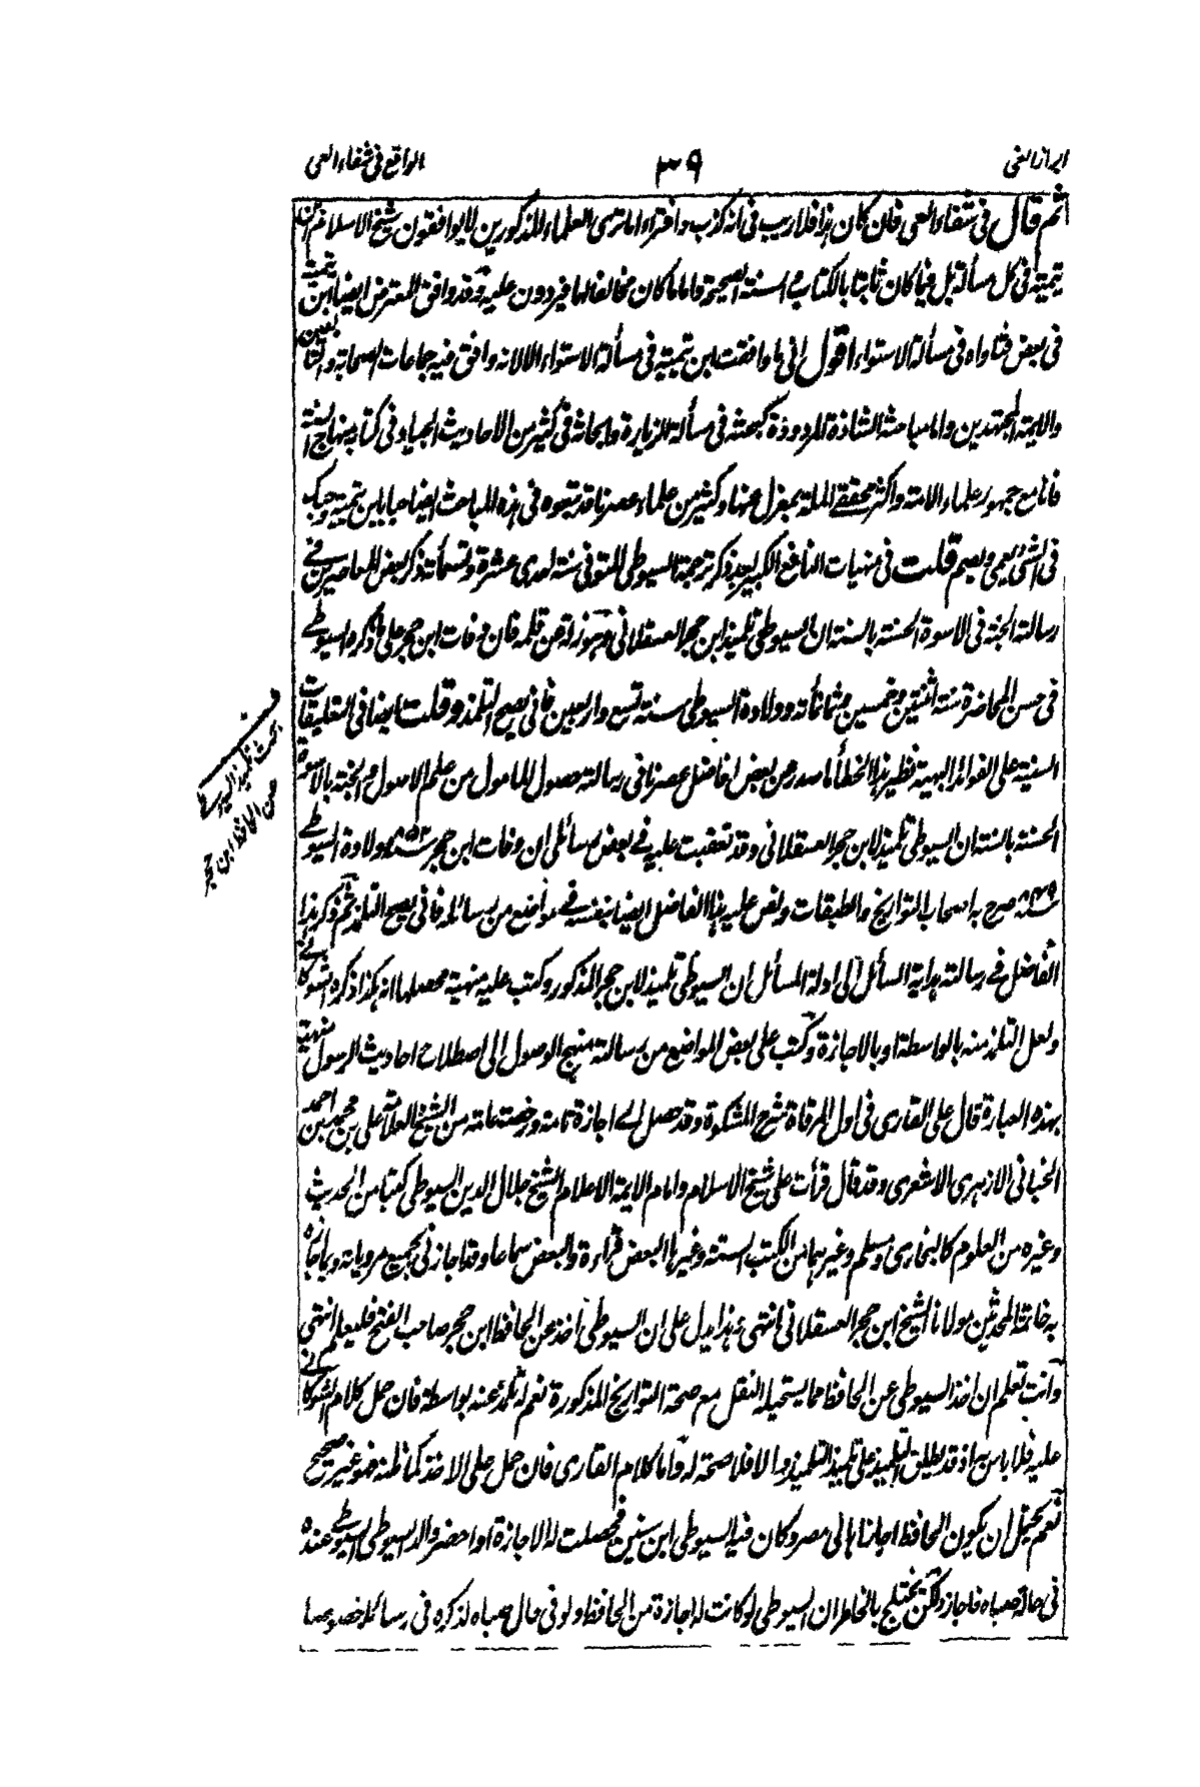 ابراز الغی
٣٩
الواقع فی شفاء العی
ثم قال فی شفاء العی فان کان ہذا فلا ریب فی انہ کذب وافتراء اما تری العلماء المذکورین لا یوافقون شیخ الاسلام ابن
تیمیۃ فی کل مسألۃ بل فیما کان ثابتا بالکتاب والسنۃ الصحیحۃ واما ما کان مخالفا لہما فیردون علیہ وقد وافق المعترض ایضا ابن تیمیۃ
فی بعض فتاواہ فی مسألۃ الاستواء اقول انی ما وافقت ابن تیمیۃ فی مسألۃ الاستواء الا لانہ وافق فیہ جماعات الصحابۃ والتابعین
والایمۃ المجتہدین واما مباحثہ الشاذۃ المردودۃ کبحثہ فی مسألۃ الزیارۃ وابحاثہ فی کثیر من الاحادیث الجیاد فی کتابہ منہاج السنۃ
فانا مع جمہور علماء الامۃ واکثر محققے الملۃ بمعزل عنہا وکثیر من علماء عصرنا قد تبعوہ فی ہذہ المباحث ایضا حبا لابن تیمیۃ وحبک
فی الشئ یعمی ویصم قلت فی منہیات النافع الکبیر بعد ذکر ترجمۃ السیوطی المتوفی سنۃ احدی عشرۃ وتسعمأتہ ذکر بعض المعاصرین فے
رسالتہ الجنۃ فی الاسوۃ الحسنۃ بالسنۃ ان السیوطی تلمیذ ابن حجر العسقلانی وہو زلۃ من قلمہ فان وفات ابن حجر علی ما ذکرہ السیوطے
فی حسن المحاضرۃ سنۃ اثنتین وخمسین وثمانمأتہ وولادۃ السیوطی سنۃ تسع واربعین فانی یصح التلمذ وقلت ایضا فی التعلیقات
السنیۃ علی الفوائد البہیۃ نظیر ہذا الخطأ ما صدر من بعض افاضل عصرنا فی رسالتہ حصول المامول من علم الاصول والجنۃ بالاسوۃ
الحسنۃ بالسنۃ ان السیوطی تلمیذ لابن حجر العسقلانی وقد تعقبت علیہ فے بعض رسائلی ان وفات ابن حجر سنۃ ٨٥٢ وولادۃ السیوطے
سنۃ ٨٤٩ صرح بہ اصحاب التواریخ والطبقات ونص علیہ ہذا الفاضل ایضا بنفسہ فے مواضع من رسائلہ فانی یصح التلمذ ثم ذکر ہذا
الفاضل فے رسالتہ ہدایۃ السائل الی ادلۃ المسائل ان السیوطی تلمیذ لابن حجر المذکور وکتب علیہ منہیۃ محصلہا انہ ہکذا ذکرہ الشوکانے
ولعل التلمذ منہ بالواسطۃ او بالاجازۃ وکتب علی بعض المواضع من رسالتہ منہج الوصول الی اصطلاح احادیث الرسول منہیۃ
بہذہ العبارۃ قال علی القاری فی اول المرقاۃ شرح المشکوۃ وقد حصل لے اجازۃ تامۃ ورخصۃ عامۃ من الشیخ العلامۃ علی بن محمد بن احمد
الجنانی الازہری الاشعری وقد قال قرأت علی شیخ الاسلام وامام الایمۃ الاعلام الشیخ جلال الدین السیوطی کتبا من الحدیث
وغیرہ من العلوم کالبخاری ومسلم وغیرہما من الکتب الستۃ وغیرہا البعض قراءۃ والبعض سماعا وقد اجازنی بجمیع مرویاتہ وبما اجازہ
بہ خاتمۃ المحدثین مولانا الشیخ ابن حجر العسقلانی انتہی وہذا یدل علی ان السیوطی اخذ عن الحافظ ابن حجر صاحب الفتح فلیعلم انتہی
وانت تعلم ان اخذ السیوطی عن الحافظ مما یستحیلہ النقل مع صحۃ التواریخ المذکورۃ نعم لہ تلمذ عنہ بواسطۃ فان حمل کلام الشوکانے
علیہ فلا باس بہ اذ قد یطلق التلمیذ علی تلمیذ التلمیذ والا فلا صحۃ لہ واما کلام القاری فان حمل علی الاخذ کما ظنہ فہو غیر صحیح
نعم یحتمل ان یکون الحافظ اجاز اہالی مصر وکان فیہ السیوطی ابن سنین فحصلت لہ الاجازۃ او احضر والد السیوطی السیوطے عندہ
فی حالۃ صباہ فاجاز ولکن یختلج بالخاطر ان السیوطی لو کانت لہ اجازۃ من الحافظ ولو فی حال صباہ لذکرہ فی رسائلہ خصوصا
بحث تلمیذ السیوطی
من الحافظ ابن حجر